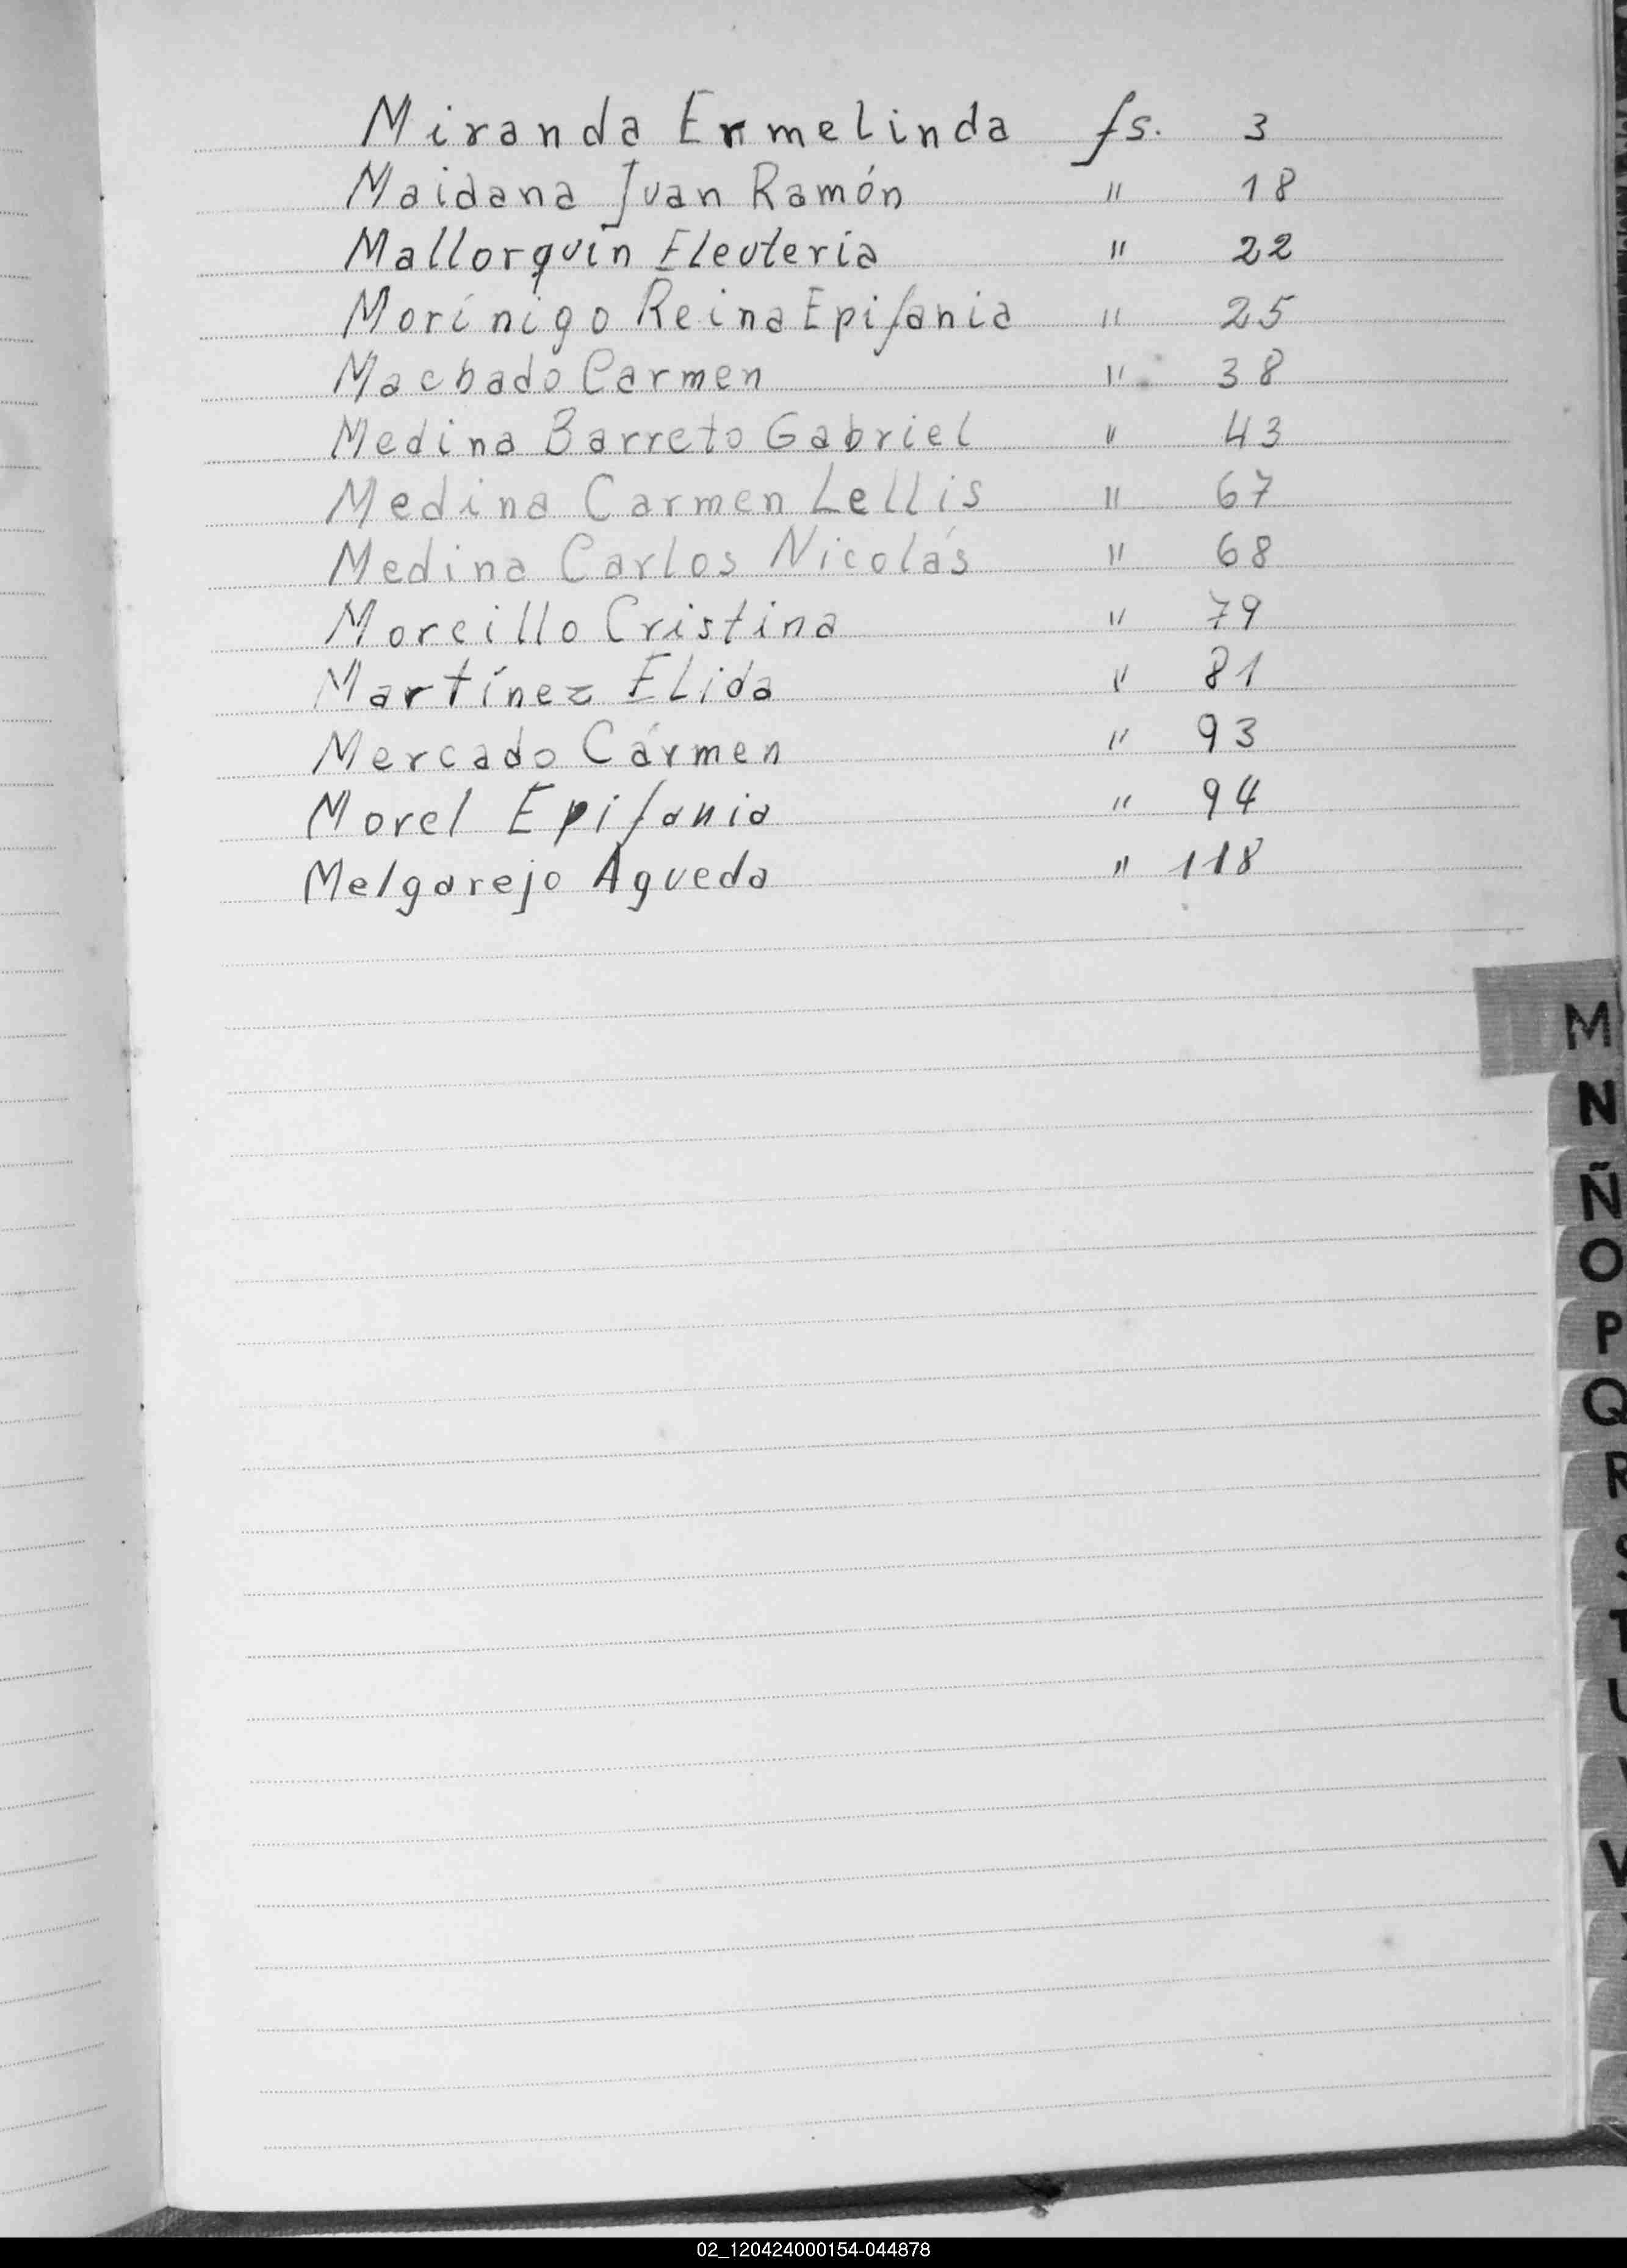 Miranda Ermelinda fs. 3
Maidana Juan Ramón " 18
Mallorquín Eleuteria " 22
Morínigo Reina Epifania " 25
Machado Carmen " 38
Medina Barreto Gabriel " 43
Medina Carmen Lellis " 67
Medina Carlos Nicolás " 68
Morcillo Cristina " 79
Martínez Elida " 81
Mercado Cármen " 93
Morel Epifania " 94
Melgarejo Agueda " 118
M
N
Ñ
O
P
Q
R
S
T
U
V
02_120424000154-044878